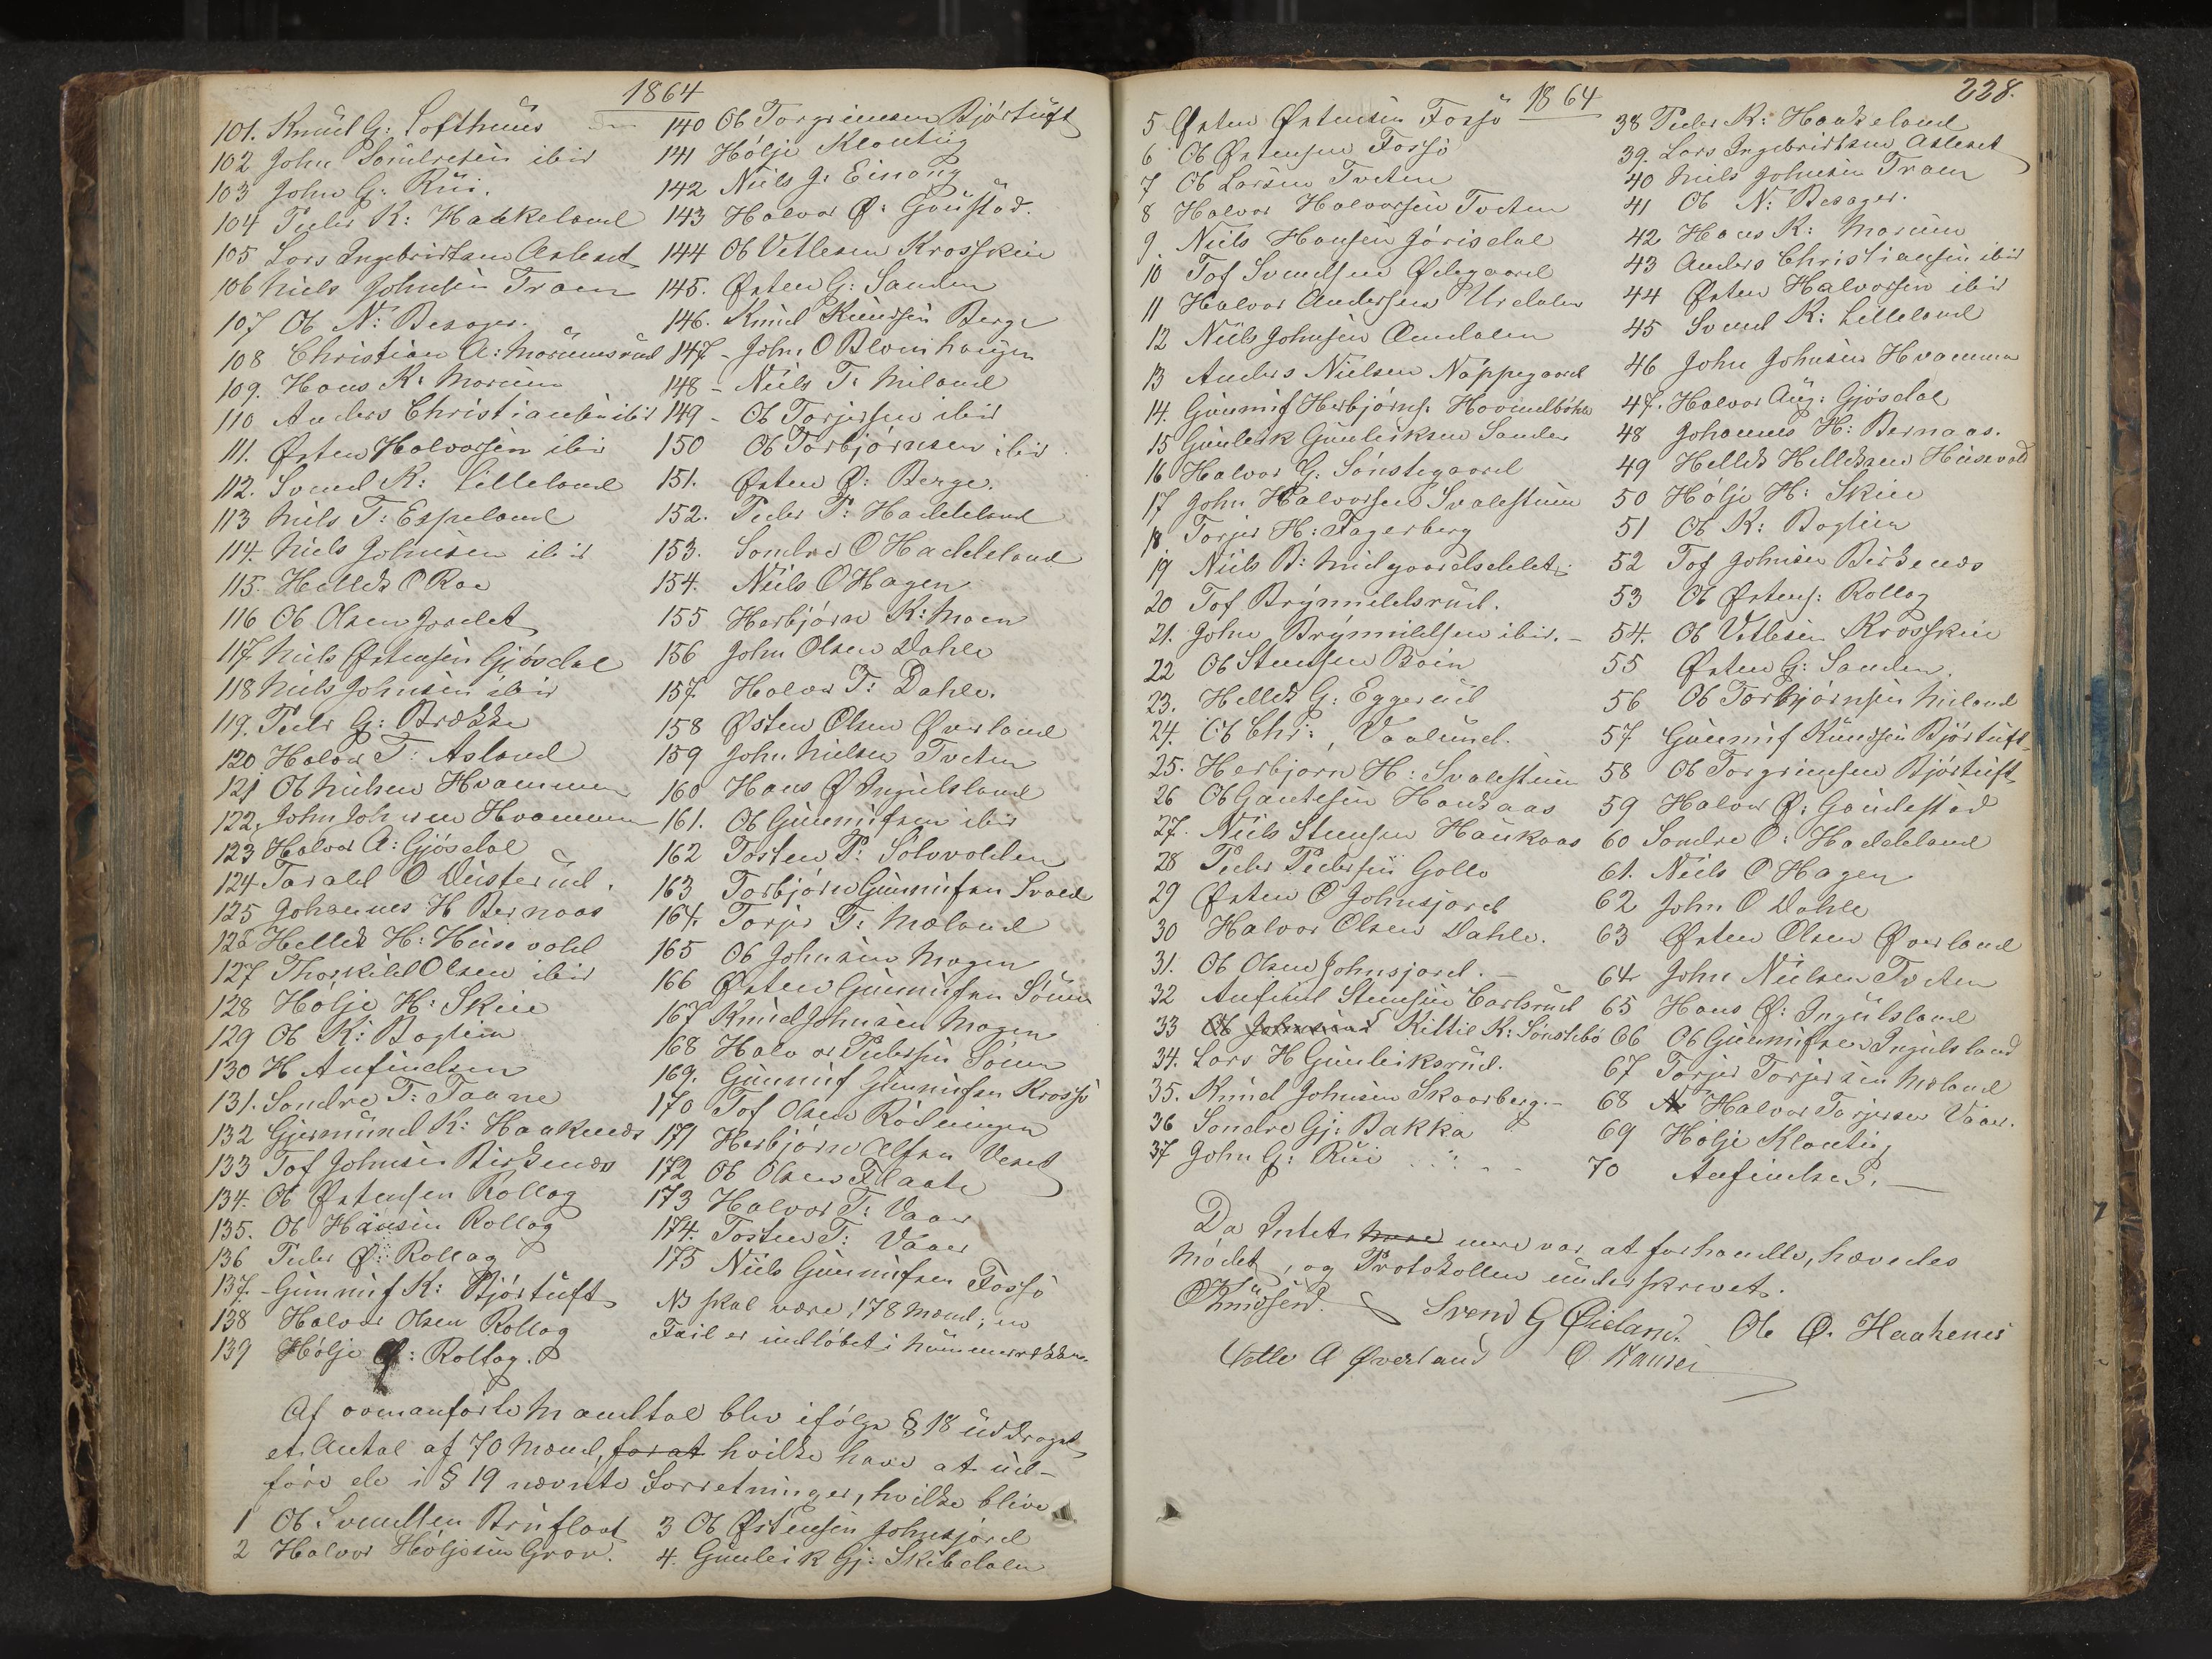 1864
101. Knud G: Lofthuus
102 John Sondresen ibid
103 John G: Rui.
104 Peder K: Haakeland
105 Lars Ingebrictsen Asleset
106 Niels Johnsen Traen
107 Ole N: Besager.
108 Christian A: Moriumsrud
109. Hans K: Morium
110 Anders Christiansen ibid
111. Østen Halvorsen ibid
112. Svend K: Lilleland
113 Niels T: Espeland
114. Niels Johnsen ibid
115. Hellek O Roe
116 Ole Olsen Jordet
117. Niels Østensen Gjøsdal
118 Niels Johnsen ibid
119. Peder G: Brække
120 Halvor T: Asland
121 Ole Nielsen Hvammen
122. John Johnsen Hvammen
123 Halvor A: Gjøsdal
124 Tarald O Dusterud.
125 Johannes H Bernaas
126 Hellek H: Husevold
127 Thorkild Olsen ibid
128 Hølje H: Skie
129 Ole K: Boglien
130 H Anfindsen
131. Sondre T: Taane
132 Gjermund K: Haakenæs
133 Tof Johnsen Birkenæs
134. Ole Østensen Rollag
135. Ole Hansen Rollag
136 Peder Ø: Rollag
137. Gunnuf K: Bjørtuft
138 Halvor Olsen Rollag
139 Hølje Ø: Rollag.
140 Ole Torgrimsen Bjørtuft
141 Hølje Kloutig
142 Niels J: Einong
143 Halvor Ø: Goustad.
144 Ole Vetlesen Krosskin
145. Østen G: Sanden
146. Knud Knudsen Berge
147 - John O Blomhaugen
148 - Niels T: Miland
149 - Ole Torjersen ibid
150 Ole Torbjørnsen ibid
151. Østen Ø: Berge.
152. Peder P: Haddeland
153. Sondre O Haddeland
154. Niels O Hagen
155 Herbjørn K: Moen
156 John Olsen Dahle
157. Halvor T: Dahle.
158 Østen Olsen Øverland
159 John Nielsen Tveten
160 Hans Ø Ingulsland
161. Ole Gunnufsen ibid
162 Tosten P: Solvolden
163 Torbjørn Gunnufsen
164. Torjer T: Mæland
165 Ole Johnsen Mogen
166 Østen Gunnufsen Søum
167 Knud Johnsen Mogen
168 Halvor Pedersen Søum
169. Gunnuf Gunnufsen Krossø
170 Tof Olsen Rødningen
171 Herbjørn Alfsen Veset
172 Ole Olsen Flaate
173 Halvor T: Vaaer
174. Tosten T: Vaaer
175 Niels Gunnufsen Fossø
NB skal være 178 Mand; en
Feil er indløbet i Nummerrækken.
Af ovenanførte Mandtal blev ifølge § 18 uddraget
et Antal af 70 Mænd, for at hvilke have at ud-
føre de i § 19 nævnte Forretninger, hvilke blive
1 Ole Svendsen Bruflaat
2 Halvor Høljesen Grov.
3 Ole Østensen Johnsjord
4. Gunleik Gj: Skibdalen
1864
228.
5 Østen Østensen Fossø
6 Ole Østensen Fossø
7 Ole Larsen Tveten
8 Halvor Halvorsen Tveten
9 Niels Hansen Jørisdal
10 Tof Svendsen Ødegaard
11 Halvor Andersen Urdalen
12 Niels Johnsen Øendalen
13 Anders Nielsen Nøppegaard
14. Gunnuf Herbjørns: Hovindbøhle
15 Gunleik Gunleiksen Sander
16 Halvor G: Sønstegaard
17 John Halvorsen Svalestuen
18 Torjer H: Fagerberg
19 Niels B: Midgaardsdelet.
20 Tof Brynnildsrud.
21. John Brynnildsen ibid. -
22 Ole Stensen Boin
23. Hellek G: Eggerud
24. Ole Chr: , Vaalund.
25. Herbjørn H: Svalestuen
26 Ole Gautesen Haukaas
27. Niels Stensen Haukaas
28 Peder Pedersen Gollo
29 Østen O Johnsjord
30 Halvor Olsen Dahle.
31. Ole Olsen Johnsjord. -
32 Anfind Stensen Carlsrud
33 Ole Johnsrud Kittil K: Sønstebø
34. Lars H Gunleiksrud.
35. Knud Johnsen Skaarberg. -
36 Sondre Gj: Bakka
37 John G: Rui
38 Peder K: Haakeland
39. Lars Ingebrictsen Asleset
40 Niels Johnsen Traen
41 Ole N: Besager.
42 Hans K: Morium
43 Anders Christiansen ibid
44 Østen Halvorsen ibid
45 Svend K: Lilleland
46 John Johnsen Hvammen
47. Halvor Aug: Gjøsdal
48 Johannes H: Bernaas.
49 Hellek Helleksen Husevold
50 Hølje H: Skie
51 Ole K: Boglien
52 Tof Johnsen Birkenæs
53 Ole Østens: Rollag
54. Ole Vetlesen Krosskin
55 Østen G: Sanden.
56 Ole Torbjørnsen Miland
57 Gunnuf Knudsen Bjørtuft
58 Ole Torgrimsen Bjørtuft
59 Halvor Ø: Goudestad
60 Sondre O: Haddeland
61. Niels O Hagen
62 John O Dahle
63 Østen Olsen Øverland
64 John Nielsen Tveten
65 Hans Ø: Ingulsland
66 Ole Gunnufsen Ingulsland
67 Torjer Torjersen Mæland
68 Halvor Torjersen Vaaer.
69 Hølje Kloutig
70 Anfindsen. -
Da Intet mere mere var at forhandle, hævedes
Mødet, og Protokollen underskrevet.
OKnudsen. Svend G Øieland. Ole O. Haakenes
Vetle A Øverland O Hansen